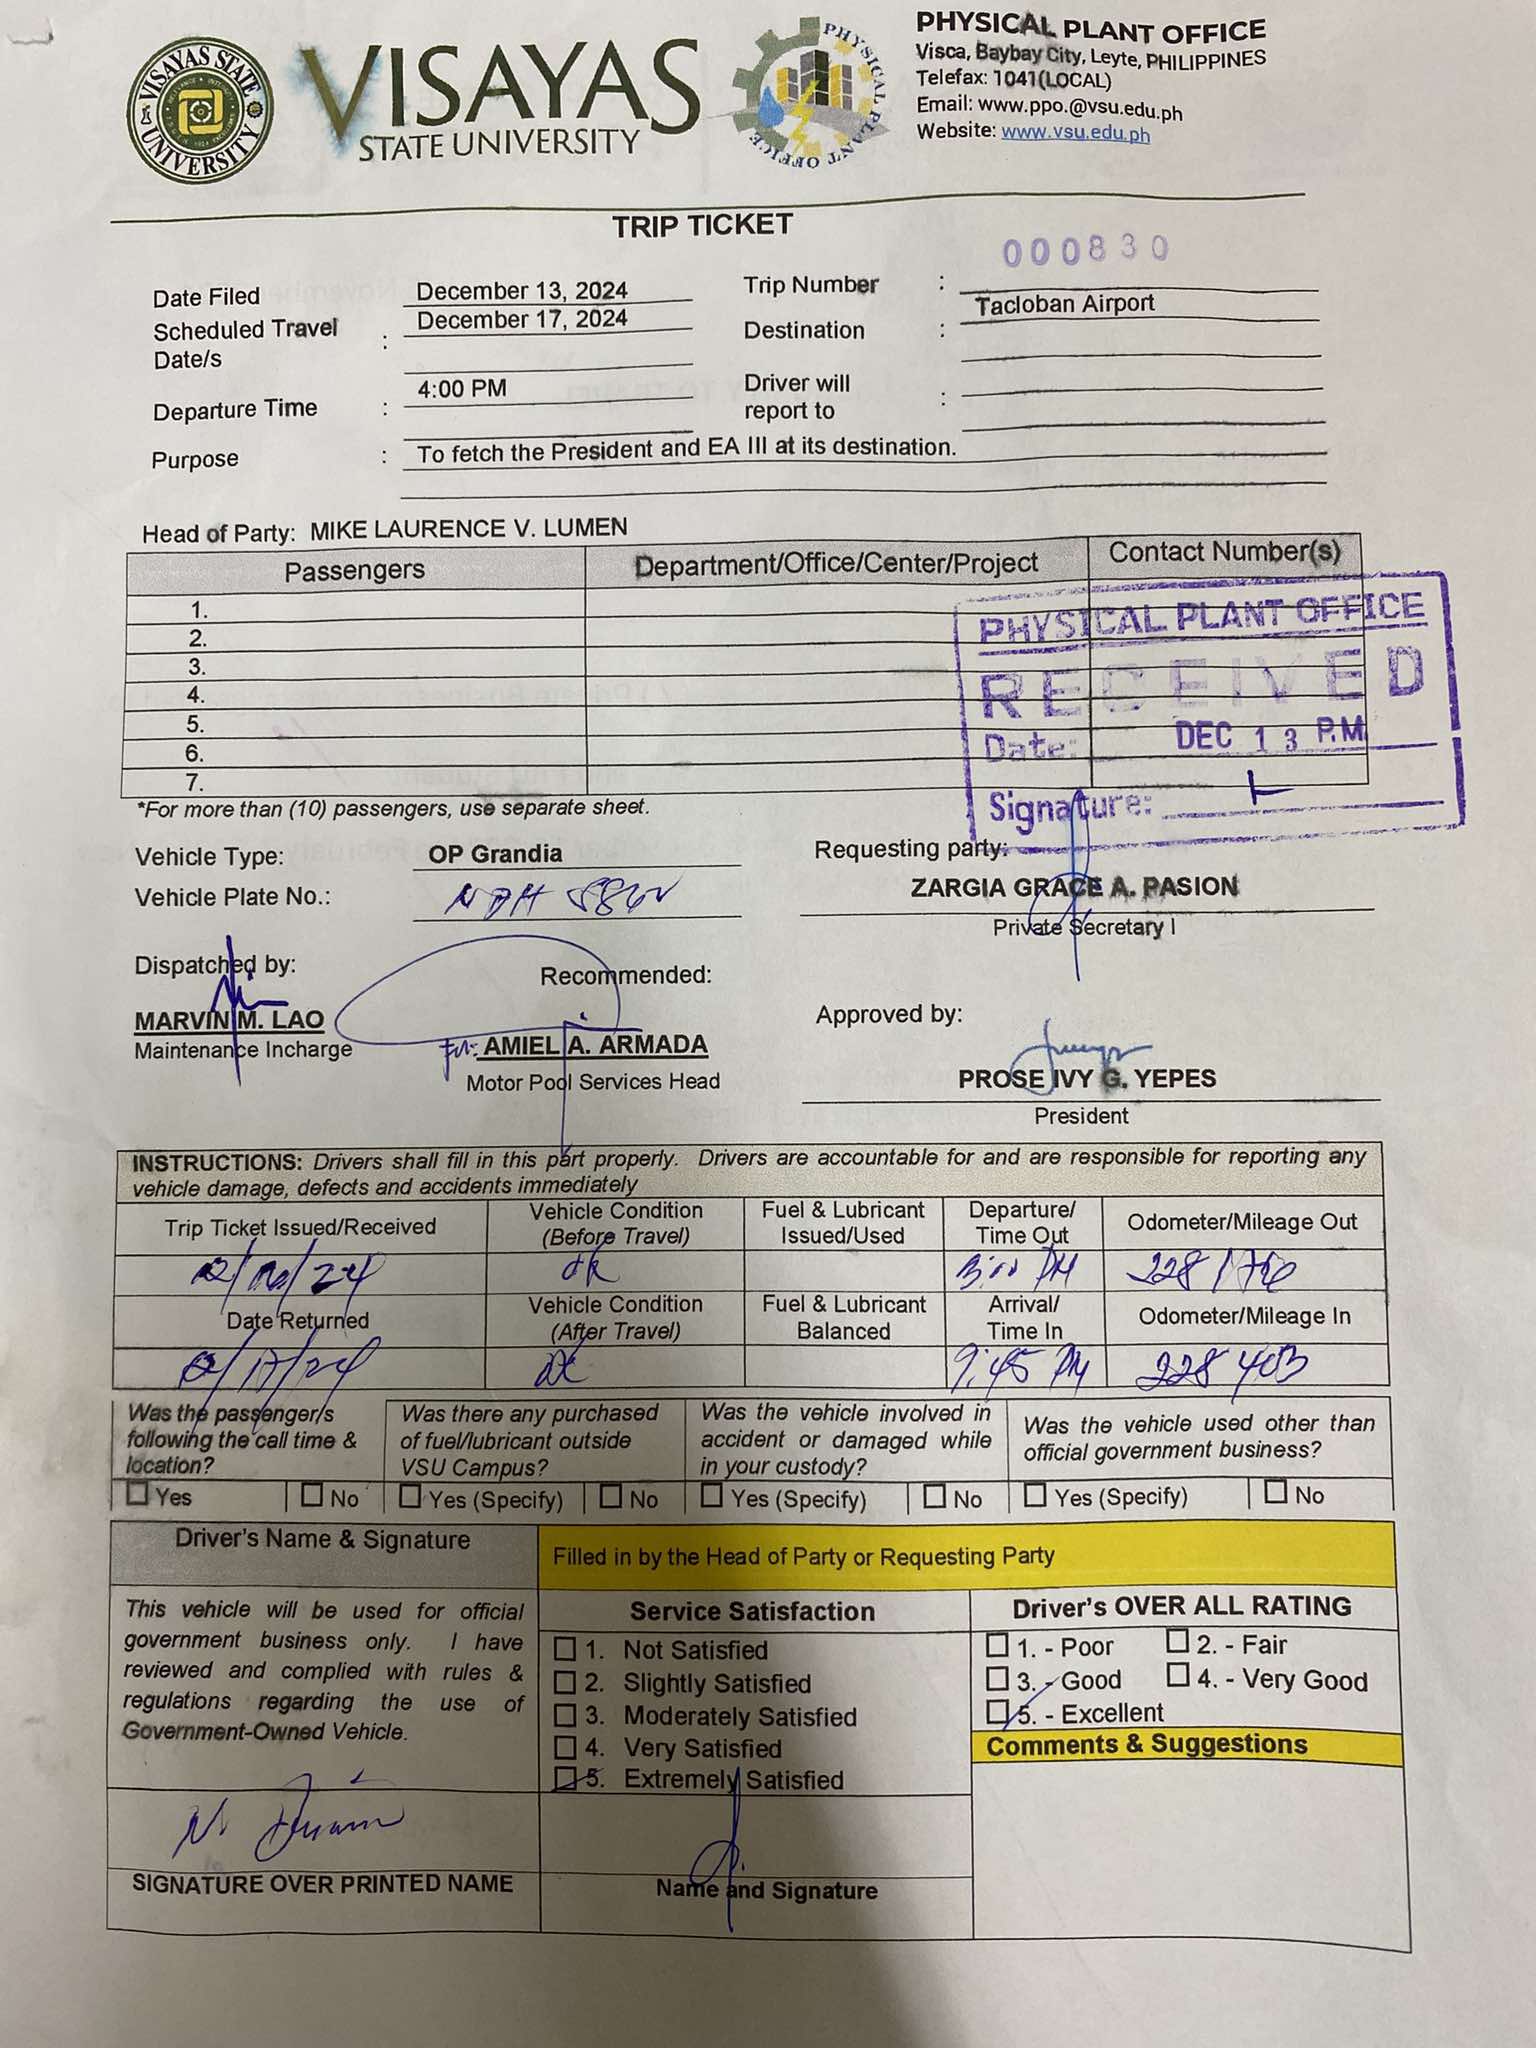 VISAYAS STATE UNIVERSITY
VISAYAS
STATE UNIVERSITY
PHYSICAL PLANT OFFICE
PHYSICAL PLANT OFFICE
Visca, Baybay City, Leyte, PHILIPPINES
Telefax: 1041(LOCAL)
Email: www.ppo.@vsu.edu.ph
Website: www.vsu.edu.ph
TRIP TICKET
000830
Date Filed December 13, 2024 Trip Number :
Scheduled Travel Date/s : December 17, 2024 Destination : Tacloban Airport
Departure Time : 4:00 PM Driver will report to :
Purpose : To fetch the President and EA III at its destination.
Head of Party: MIKE LAURENCE V. LUMEN
Passengers Department/Office/Center/Project Contact Number(s)
1.
2.
3.
4.
5.
6.
7.
PHYSICAL PLANT OFFICE
RECEIVED
Date: DEC 13 P.M
Signature:
*For more than (10) passengers, use separate sheet.
Vehicle Type: OP Grandia Requesting party:
Vehicle Plate No.: ZARGIA GRACE A. PASION
Private Secretary I
Dispatched by: Recommended:
Approved by:
MARVIN M. LAO
Maintenance Incharge
AMIEL A. ARMADA
Motor Pool Services Head
PROSE IVY G. YEPES
President
INSTRUCTIONS: Drivers shall fill in this part properly. Drivers are accountable for and are responsible for reporting any
vehicle damage, defects and accidents immediately
Trip Ticket Issued/Received Vehicle Condition (Before Travel) Fuel & Lubricant Issued/Used Departure/ Time Out Odometer/Mileage Out
ok 3:00 PM
Date Returned Vehicle Condition (After Travel) Fuel & Lubricant Balanced Arrival/ Time In Odometer/Mileage In
12/17/24 ok 9:45 PM 228403
Was the passenger/s following the call time & location?
Was there any purchased of fuel/lubricant outside VSU Campus?
Was the vehicle involved in accident or damaged while in your custody?
Was the vehicle used other than official government business?
Yes No Yes (Specify) No Yes (Specify) No Yes (Specify) No
Driver's Name & Signature
Filled in by the Head of Party or Requesting Party
This vehicle will be used for official
government business only. I have
reviewed and complied with rules &
regulations regarding the use of
Government-Owned Vehicle.
Service Satisfaction
1. Not Satisfied
2. Slightly Satisfied
3. Moderately Satisfied
4. Very Satisfied
5. Extremely Satisfied
Driver's OVER ALL RATING
1. - Poor 2. - Fair
3. - Good 4. - Very Good
5. - Excellent
Comments & Suggestions
SIGNATURE OVER PRINTED NAME
Name and Signature